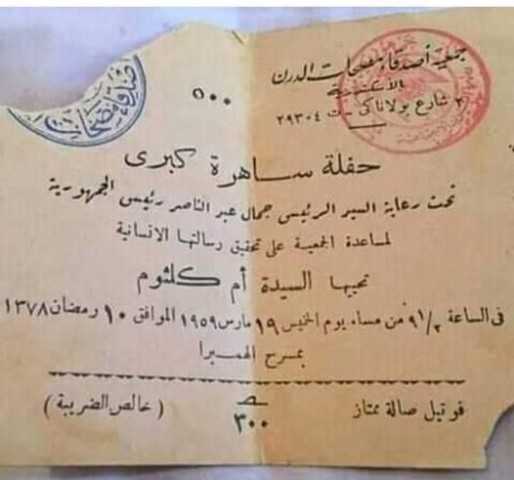 جمعية أصدقاء مصحات الدرن
بالأسكندرية
٢ شارع بولاناكى - ت ٢٩٣٠٤
٥٠٠
أصدقاء مصحات
حفلة ساهرة كبرى
تحت رعاية السيد الرئيس جمال عبد الناصر رئيس الجمهورية
لمساعدة الجمعية على تحقيق رسالتها الانسانية
تحييها السيدة أم كلثوم
فى الساعة ٩١/٢ من مساء يوم الخميس ١٩ مارس ١٩٥٩ الموافق ١٠ رمضان ١٣٧٨
بمسرح الهمبرا
فوتيل صالة ممتاز ٣٠٠ (خالص الضريبة)